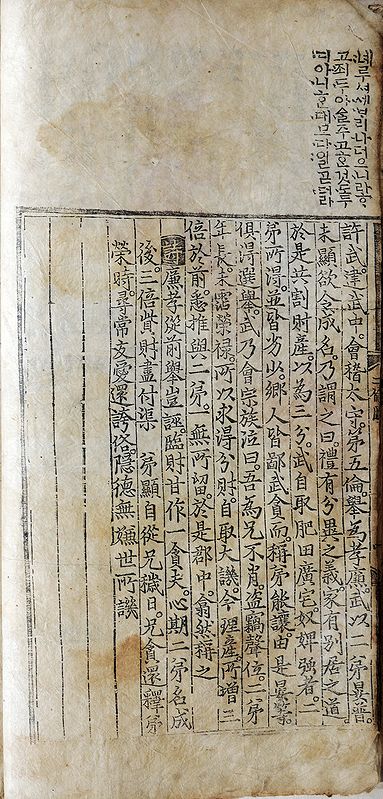 녜루셔세ᄇᆞ리나더으니라ᄒᆞ
고죄두아ᅀᆞ주고ᄒᆞᆫ것도두
디아니ᄒᆞᆫ대모다일ᄏᆞᆮ더라
許武建武中。會稽太守。第五倫舉為孝廉。武以二弟晏普。
未顯欲令成名。乃謂之曰。禮有分異之義。家有別居之道
於是共割財產。以為三分。武自取肥田廣宅。奴婢強者。二
弟所得。並皆劣少。鄉人皆鄙武貪而稱弟能讓。由是晏等。
俱得選舉。武乃會宗族泣曰。吾為兄不肖。盜竊聲位。二弟
年長。未霑榮祿。所以求得分財自取大譏。今理產所增三
倍於前。悉推與二弟。無所留於是郡中。翕然稱之
詩廉孝從前舉豈誣。臨財甘作一貪夫。心期二弟名成
後。三倍貲財盡付渠 弟顯自從兄穢日。兄貪還釋弟
榮時。尋常友愛還誇俗。隱德無嫌世所譏